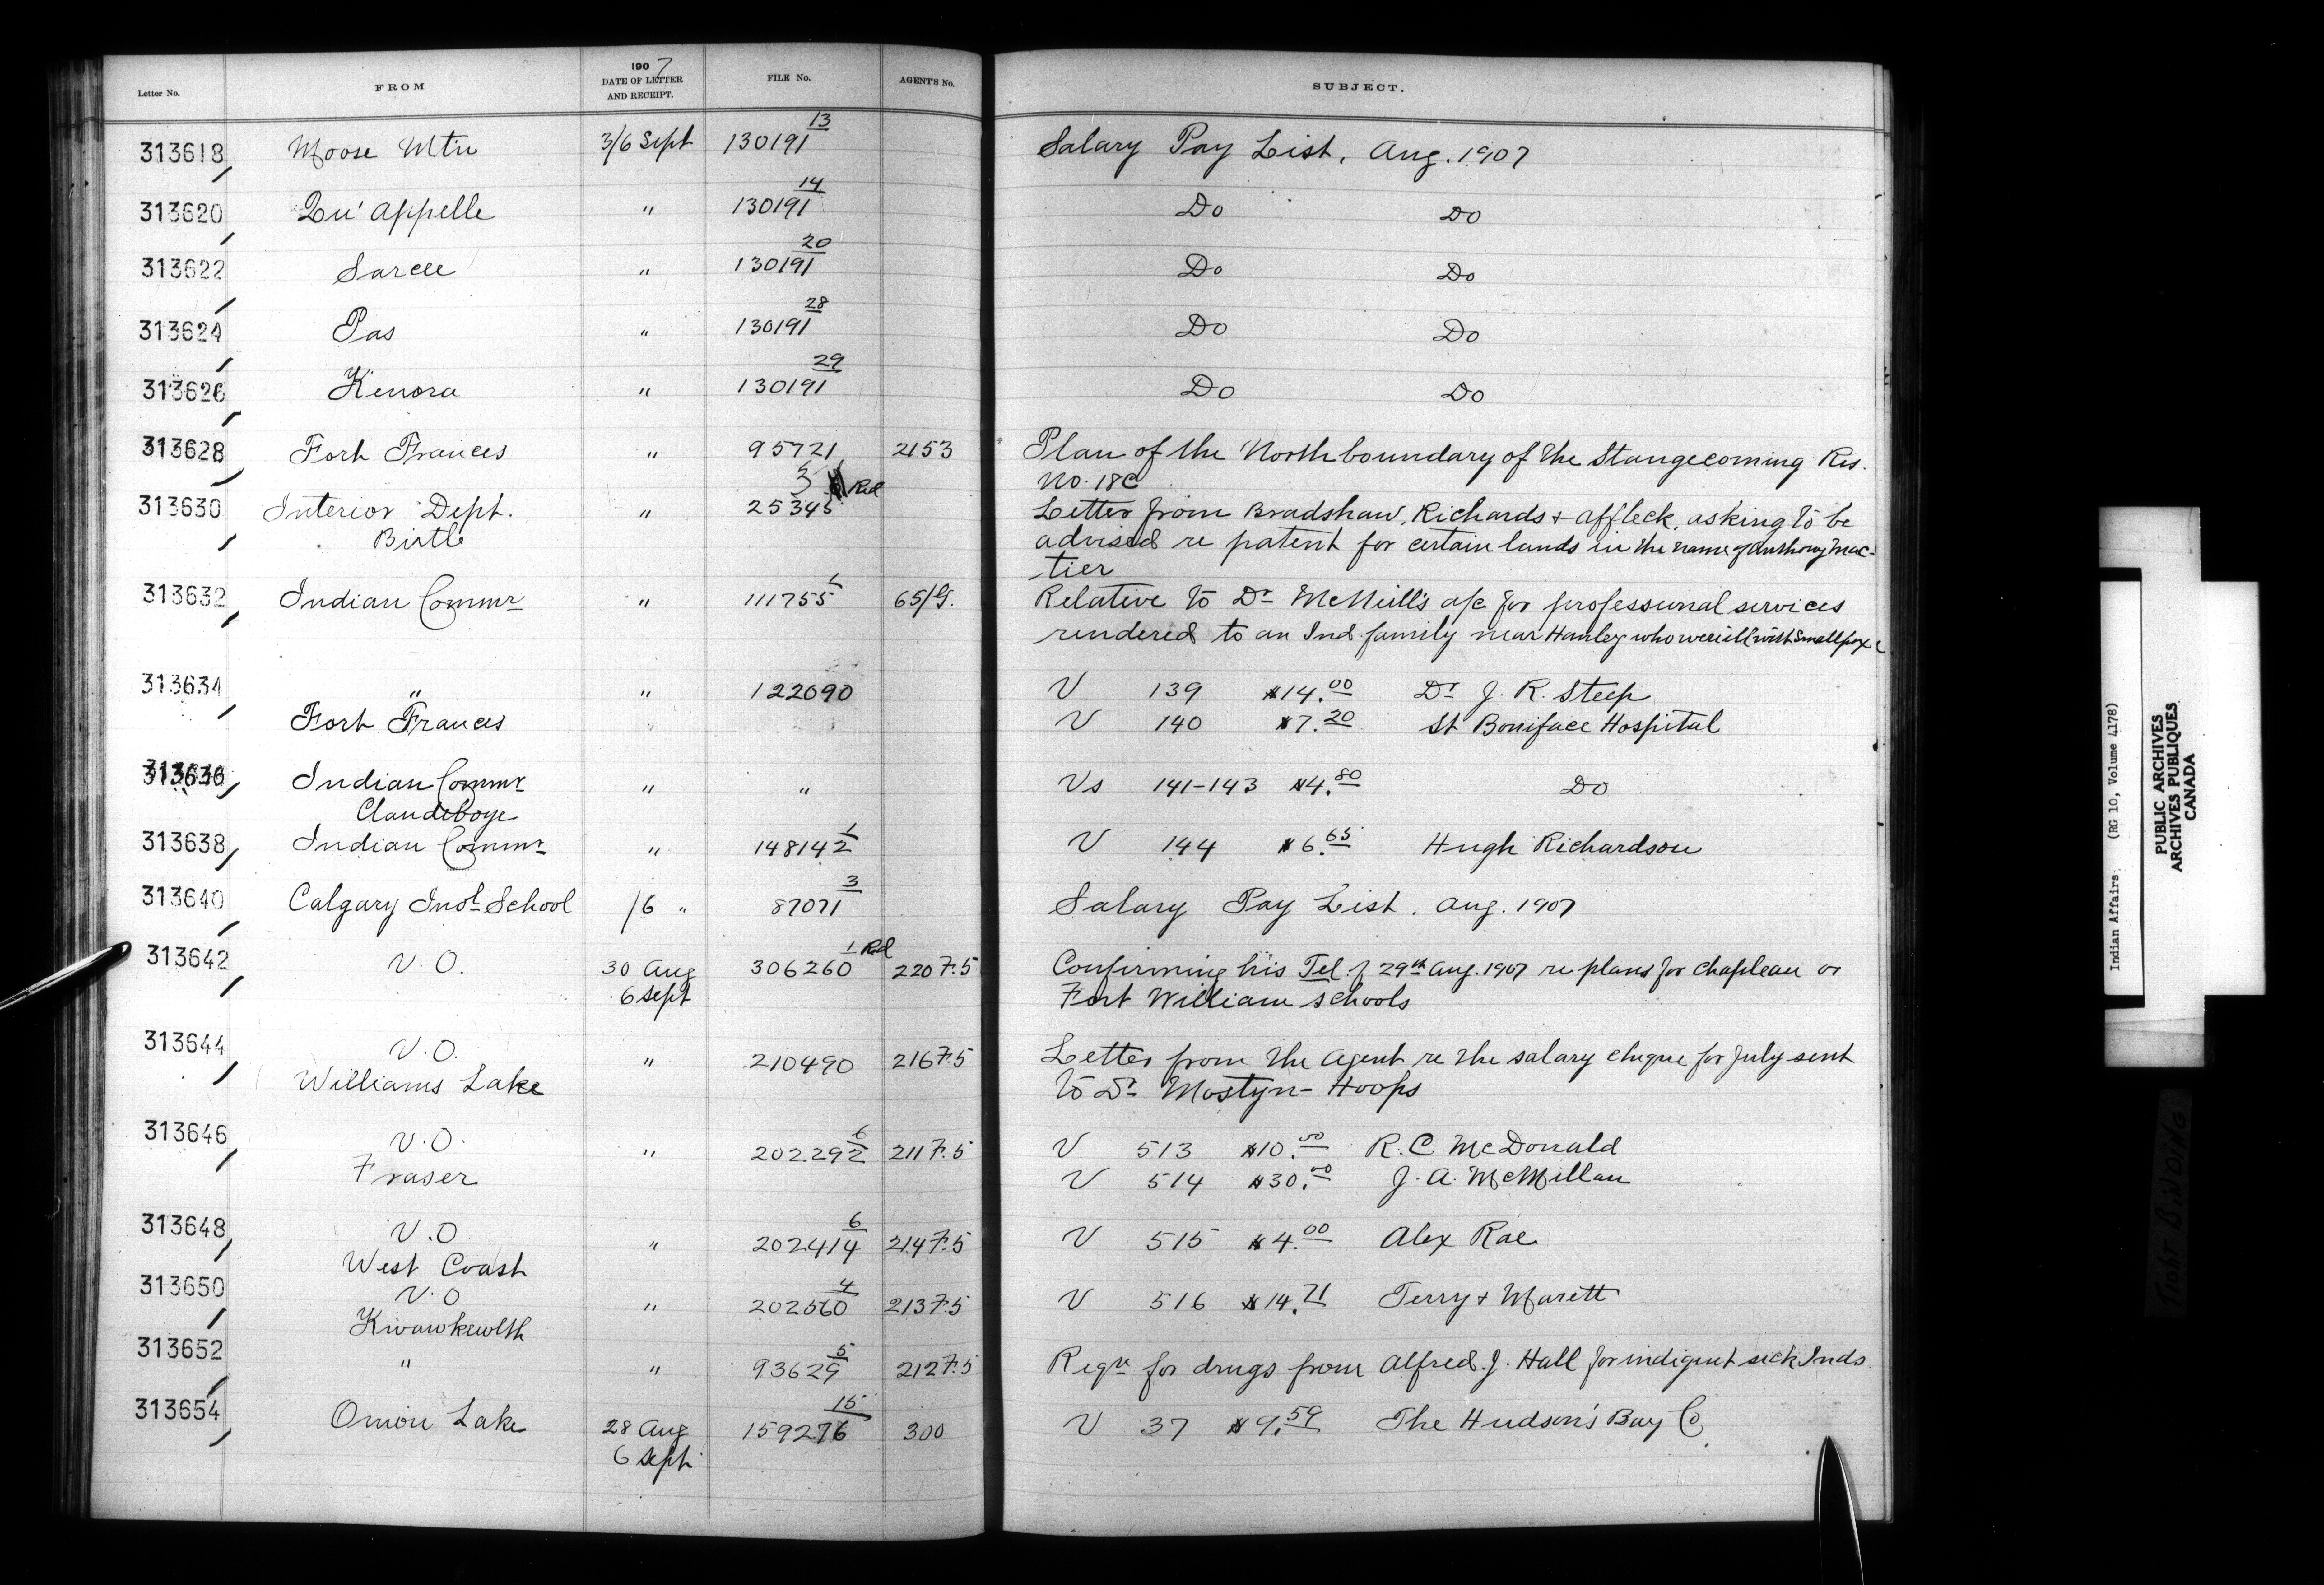 Letter No. FROM 1907 DATE OF LETTER AND RECEIPT. FILE No. AGENT'S No. SUBJECT.
313618 Moose Mtn 3/6 Sept 130191 13 Salary Pay List, Aug. 1907
313620 Qu'Appelle " 130191 14 Do Do
313622 Sarcee " 130191 20 Do Do
313624 Pas " 130191 28 Do Do
313626 Kenora " 130191 29 Do Do
313628 Fort Frances " 95721 2153 Plan of the North boundary of the Stangecoming Res.
No. 18C
313630 Interior Dept. " 25345 3 Red Letter from Bradshaw, Richards & Affleck, asking to be
Birtle advised re patent for certain lands in the name of Anthony Mac-
tier
313632 Indian Commr " 111755 65/G. Relative to Dr McNeill's a/c for professional services
rendered to an Ind. family near Hanley who were ill with Smallpox
313634 " " 122090 V 139 $14.00 Dr J. R. Steep
Fort Frances V 140 $7.20 St Boniface Hospital
313636 Indian Commr " " Vs 141-143 $4.80 Do
Clandeboye
313638 Indian Commr " 148142 1 V 144 $6.65 Hugh Richardson
313640 Calgary Indl School /6 " 87071 3 Salary Pay List. Aug. 1907
313642 V.O. 30 Aug 306260 1 Red 220 F.5 Confirming his Tel. of 29th Aug. 1907 re plans for Chapleau or
6 Sept Fort William schools
313644 V.O. " 210490 216 F.5 Letter from the Agent re the salary cheque for July sent
Williams Lake to Dr Mostyn-Hoops
313646 V.O. " 202292 6 211 F.5 V 513 $10.00 R. C McDonald
Fraser V 514 $30.00 J. A. McMillan
313648 V.O " 202414 6 214 F.5 V 515 $4.00 Alex Rae
West Coast
313650 V.O " 202560 4 213 F.5 V 516 $14.71 Terry & Marett
Kwawkewlth
313652 " " 93629 5 212 F.5 Reqn for drugs from Alfred. J. Hall for indigent sick Inds
313654 Onion Lake 28 Aug 159276 15 300 V 37 $9.59 The Hudson's Bay Co
6 Sept
Indian Affairs. (RG 10, Volume 4178)
PUBLIC ARCHIVES
ARCHIVES PUBLIQUES
CANADA